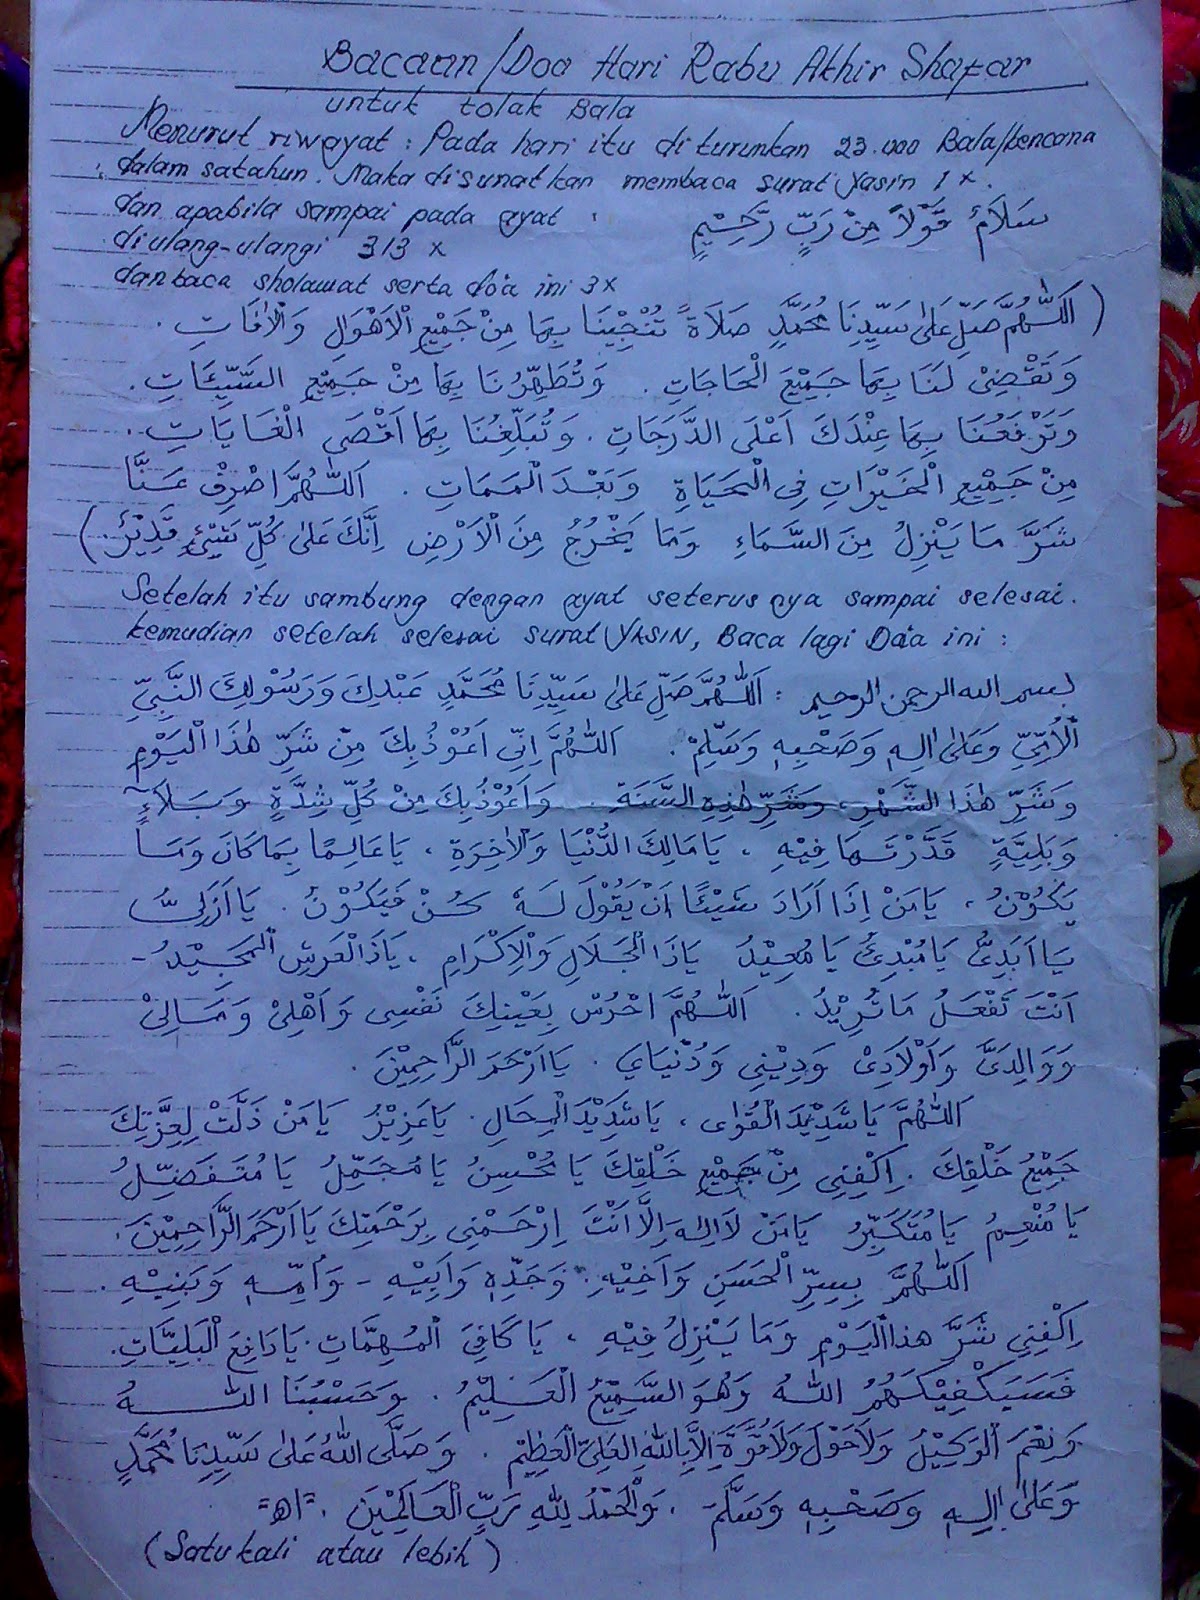 Bacaan/Doa Hari Rabu Akhir Shafar
untuk tolak Bala
Menurut riwayat : Pada hari itu diturunkan 23.000 Bala/bencana
dalam satahun. Maka disunatkan membaca surat Yasin 1 x.
dan apabila sampai pada ayat : سَلَامٌ قَوْلًا مِنْ رَبٍّ رَحِيْمٍ
diulang-ulangi 313 x
dan baca sholawat serta do'a ini 3x
( اَللّٰهُمَّ صَلِّ عَلٰى سَيِّدِنَا مُحَمَّدٍ صَلَاةً تُنْجِيْنَا بِهَا مِنْ جَمِيْعِ الْاَهْوَالِ وَالْاٰفَاتِ .
وَتَقْضِيْ لَنَا بِهَا جَمِيْعَ الْحَاجَاتِ . وَتُطَهِّرُنَا بِهَا مِنْ جَمِيْعِ السَّيِّئَاتِ .
وَتَرْفَعُنَا بِهَا عِنْدَكَ اَعْلَى الدَّرَجَاتِ . وَتُبَلِّغُنَا بِهَا اَقْصَى الْغَايَاتِ .
مِنْ جَمِيْعِ الْخَيْرَاتِ فِى الْحَيَاةِ وَبَعْدَ الْمَمَاتِ . اَللّٰهُمَّ اصْرِفْ عَنَّا
شَرَّ مَا يَنْزِلُ مِنَ السَّمَاءِ وَمَا يَخْرُجُ مِنَ الْاَرْضِ اِنَّكَ عَلٰى كُلِّ شَيْئٍ قَدِيْرٌ )
Setelah itu sambung dengan ayat seterusnya sampai selesai.
kemudian setelah selesai surat YASIN, Baca lagi Do'a ini :
بسم الله الرحمن الرحيم : اَللّٰهُمَّ صَلِّ عَلٰى سَيِّدِنَا مُحَمَّدٍ عَبْدِكَ وَرَسُوْلِكَ النَّبِيِّ
الْاُمِّيِّ وَعَلٰى اٰلِهِ وَصَحْبِهِ وَسَلِّمْ . اَللّٰهُمَّ اِنِّي اَعُوْذُ بِكَ مِنْ شَرِّ هٰذَا الْيَوْمِ
وَشَرِّ هٰذَا الشَّهْرِ ، وَشَرِّ هٰذِهِ السَّنَةِ . وَاَعُوْذُ بِكَ مِنْ كُلِّ شِدَّةٍ وَبَلَاءٍ
وَبَلِيَّةٍ قَدَّرْتَهَا فِيْهِ ، يَا مَالِكَ الدُّنْيَا وَالْاٰخِرَةِ ، يَا عَالِمًا بِمَا كَانَ وَمَا
يَكُوْنُ ، يَا مَنْ اِذَا اَرَادَ شَيْئًا اَنْ يَقُوْلَ لَهُ كُنْ فَيَكُوْنُ . يَا اَزَلِيُّ
يَا اَبَدِيُّ يَا مُبْدِئُ يَا مُعِيْدُ يَا ذَا الْجَلَالِ وَالْاِكْرَامِ ، يَا ذَا الْعَرْشِ الْمَجِيْدُ -
اَنْتَ تَفْعَلُ مَا تُرِيْدُ . اَللّٰهُمَّ احْرُسْ بِعَيْنِكَ نَفْسِى وَاَهْلِيْ وَمَالِيْ
وَوَالِدَيَّ وَاَوْلَادِيْ وَدِيْنِي وَدُنْيَايَ . يَا اَرْحَمَ الرَّاحِمِيْنَ .
اَللّٰهُمَّ يَا شَدِيْدَ الْقُوٰى ، يَا شَدِيْدَ الْمِحَالِ . يَا عَزِيْزُ يَا مَنْ ذَلَّتْ لِعِزَّتِكَ
جَمِيْعُ خَلْقِكَ . اِكْفِنِي مِنْ جَمِيْعِ خَلْقِكَ يَا مُحْسِنُ يَا مُجَمِّلُ يَا مُتَفَضِّلُ
يَا مُنْعِمُ يَا مُتَكَبِّرُ يَا مَنْ لَا اِلٰهَ اِلَّا اَنْتَ اِرْحَمْنِي بِرَحْمَتِكَ يَا اَرْحَمَ الرَّاحِمِيْنَ .
اَللّٰهُمَّ بِسِرِّ الْحَسَنِ وَاَخِيْهِ . وَجَدِّهِ وَاَبِيْهِ - وَاُمِّهِ وَبَنِيْهِ .
اِكْفِنِي شَرَّ هذا الْيَوْمِ وَمَا يَنْزِلُ فِيْهِ ، يَا كَافِيَ الْمُهِمَّاتِ . يَا دَافِعَ الْبَلِيَّاتِ .
فَسَيَكْفِيْكَهُمُ اللّٰهُ وَهُوَ السَّمِيْعُ الْعَلِيْمُ . وَحَسْبُنَا اللّٰهُ
وَنِعْمَ الْوَكِيْلُ وَلَا حَوْلَ وَلَا قُوَّةَ اِلَّا بِاللّٰهِ الْعَلِيِّ الْعَظِيْمِ . وَصَلَّى اللّٰهُ عَلٰى سَيِّدِنَا مُحَمَّدٍ
وَعَلٰى اٰلِهِ وَصَحْبِهِ وَسَلَّمَ ، وَالْحَمْدُ لِلّٰهِ رَبِّ الْعَالَمِيْنَ . =اهـ=
(Satu kali atau lebih)